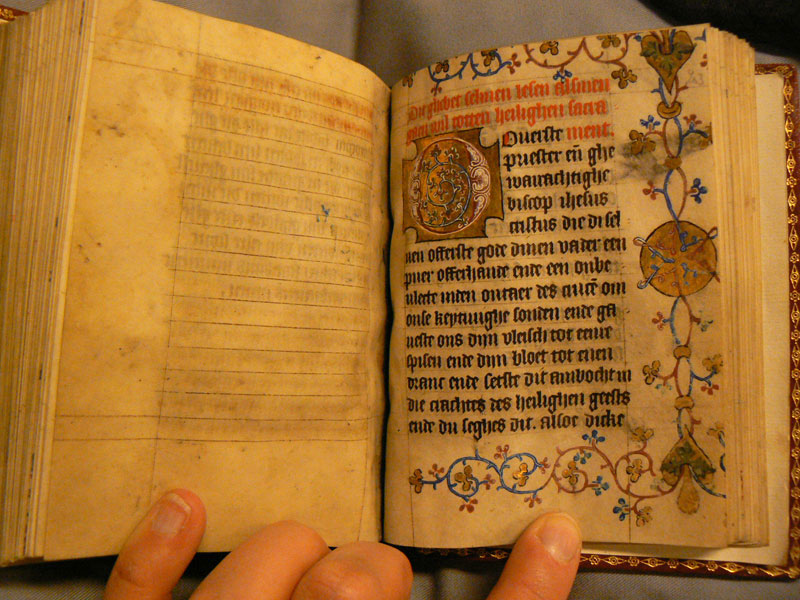 83
Dit ghebet selmen lesen alsmen
gaen wil totten heilighen sacra
OUerste ment.
priester eñ ghe
wairachtighe
biscop ihesus
cristus die di sel
uen offerste gode dinen vader een
puer offerhande ende een onbe
ulecte inden outaer des crucē om
onse keytiuighe sonden ende ga
ueste ons dijn vleisch tot eenre
spisen ende dijn bloet tot enen
dranc ende setste dit ambocht in
die crachtes des heilighen geests
ende du seghes dit. alsoe dicke